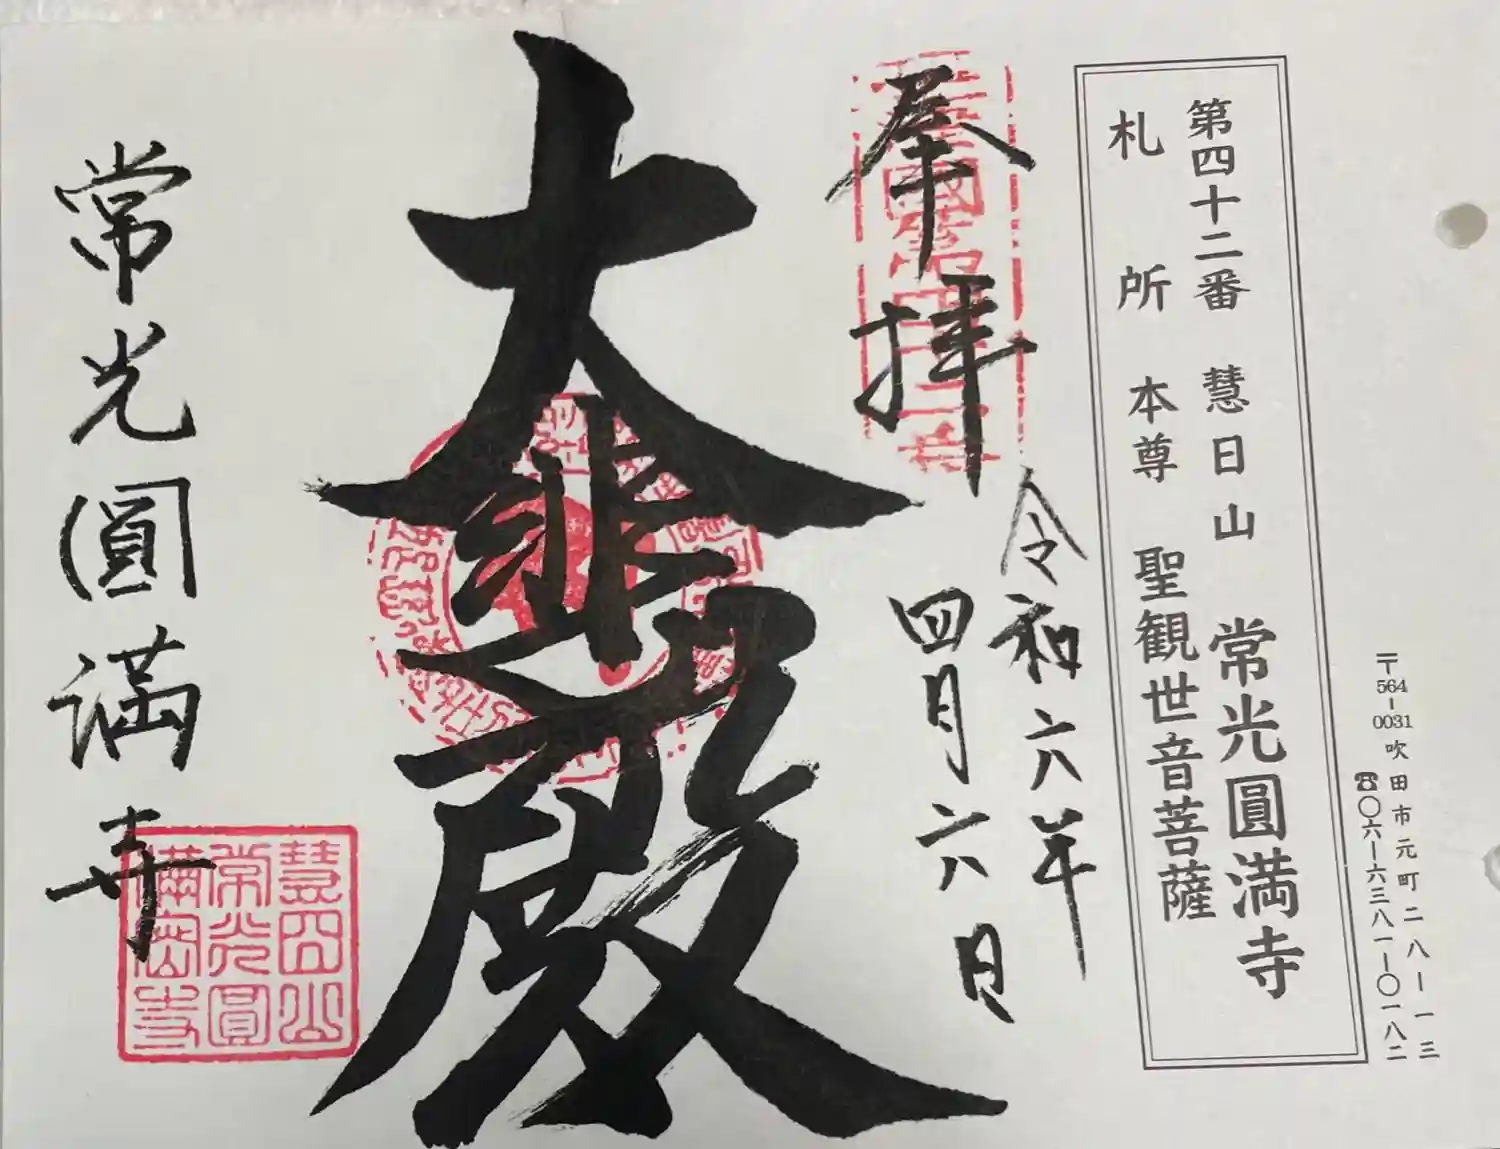 〒564-0031 吹田市元町二八ー一三
☎〇六ー六三八一ー〇一八二
第四十二番 慧日山 常光圓満寺
札所 本尊 聖観世音菩薩
奉拝
令和六年
四月六日
大悲殿
常光圓満寺
慧日山
常光圓
満密寺